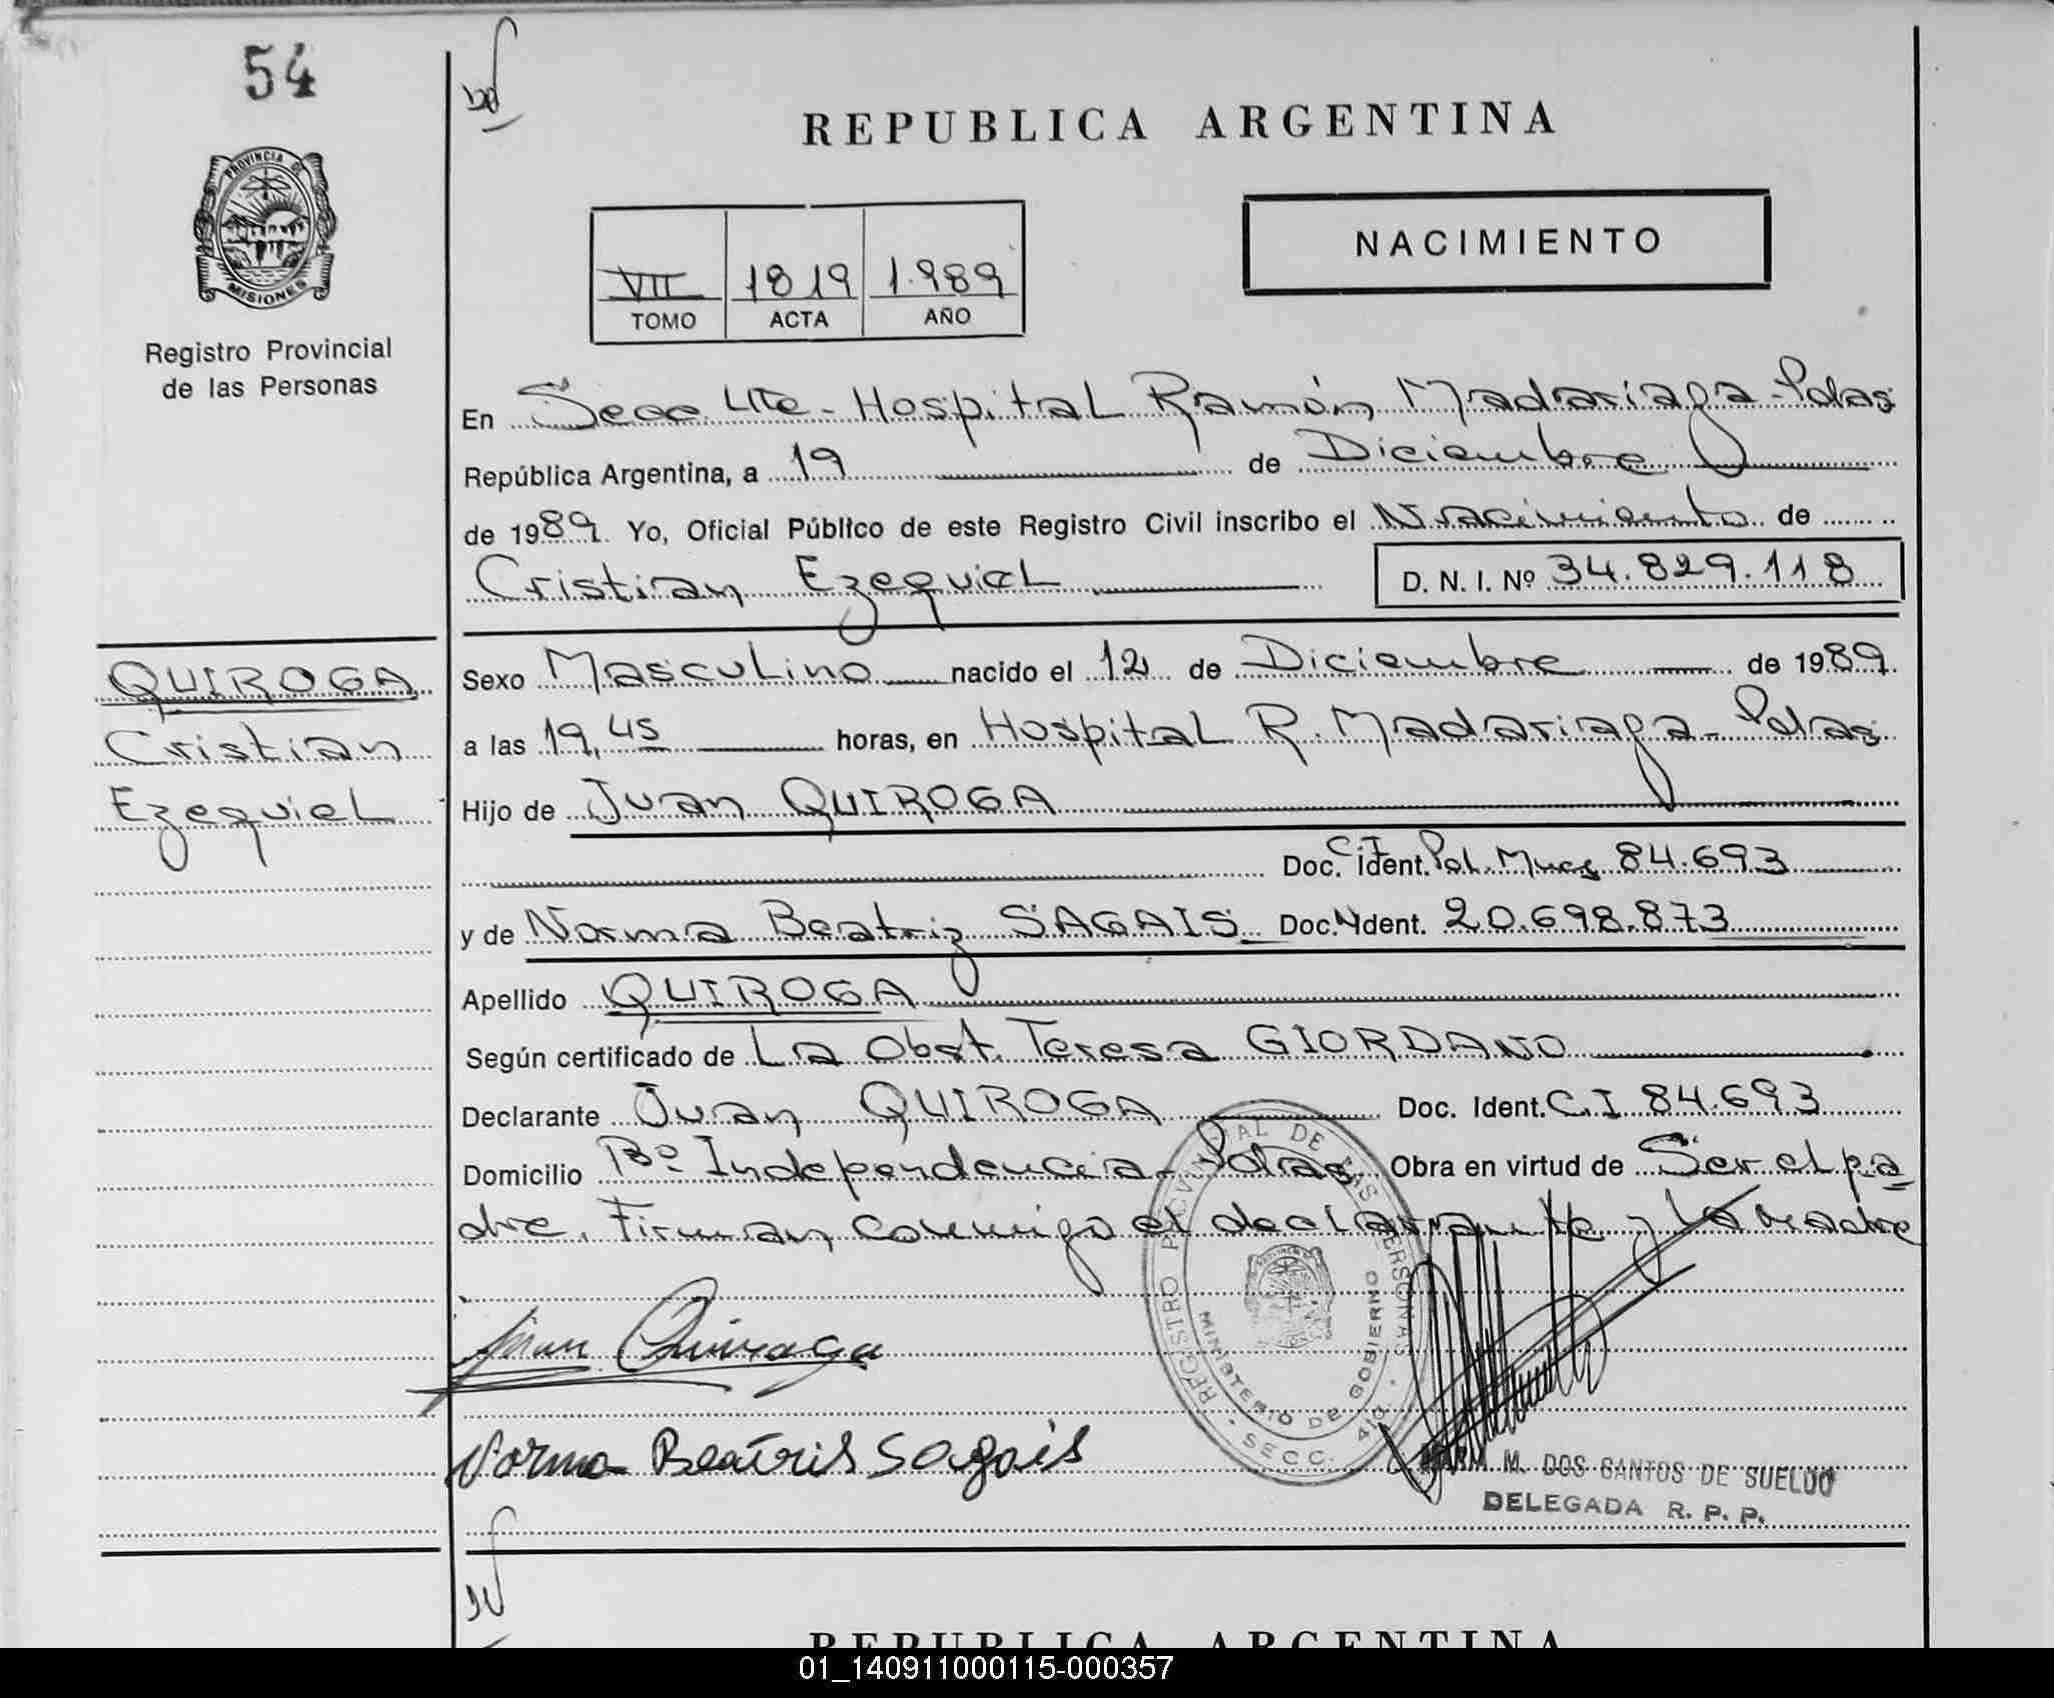 54
REPUBLICA ARGENTINA
PROVINCIA DE
MISIONES
Registro Provincial
de las Personas
NACIMIENTO
VII 1819 1.989
TOMO ACTA AÑO
En Secc 4ta - Hospital Ramón Madariaga - Pdas
República Argentina, a 19 de Diciembre
de 1989. Yo, Oficial Público de este Registro Civil inscribo el Nacimiento de
Cristian Ezequiel D. N. I. Nº 34.829.118
QUIROGA
Cristian
Ezequiel
Sexo Masculino nacido el 12 de Diciembre de 1989.
a las 19,45 horas, en Hospital R. Madariaga - Pdas
Hijo de Juan QUIROGA
Doc. Ident. C.I. Pol. Mnes 84.693
y de Norma Beatriz SAGAIS Doc. Ident. 20.698.873
Apellido QUIROGA
Según certificado de La Obst. Teresa GIORDANO
Declarante Juan QUIROGA Doc. Ident. C.I 84.693
Domicilio Bº Independencia - Pdas Obra en virtud de Ser el pa
dre. Firman conmigo el declarante y la madre
Juan Quiroga
Norma Beatris Sagais
REGISTRO PROVINCIAL DE LAS PERSONAS
MINISTERIO DE GOBIERNO
SECC. 4ta.
M. DOS SANTOS DE SUELDO
DELEGADA R. P. P.
REPUBLICA ARGENTINA
01_140911000115-000357